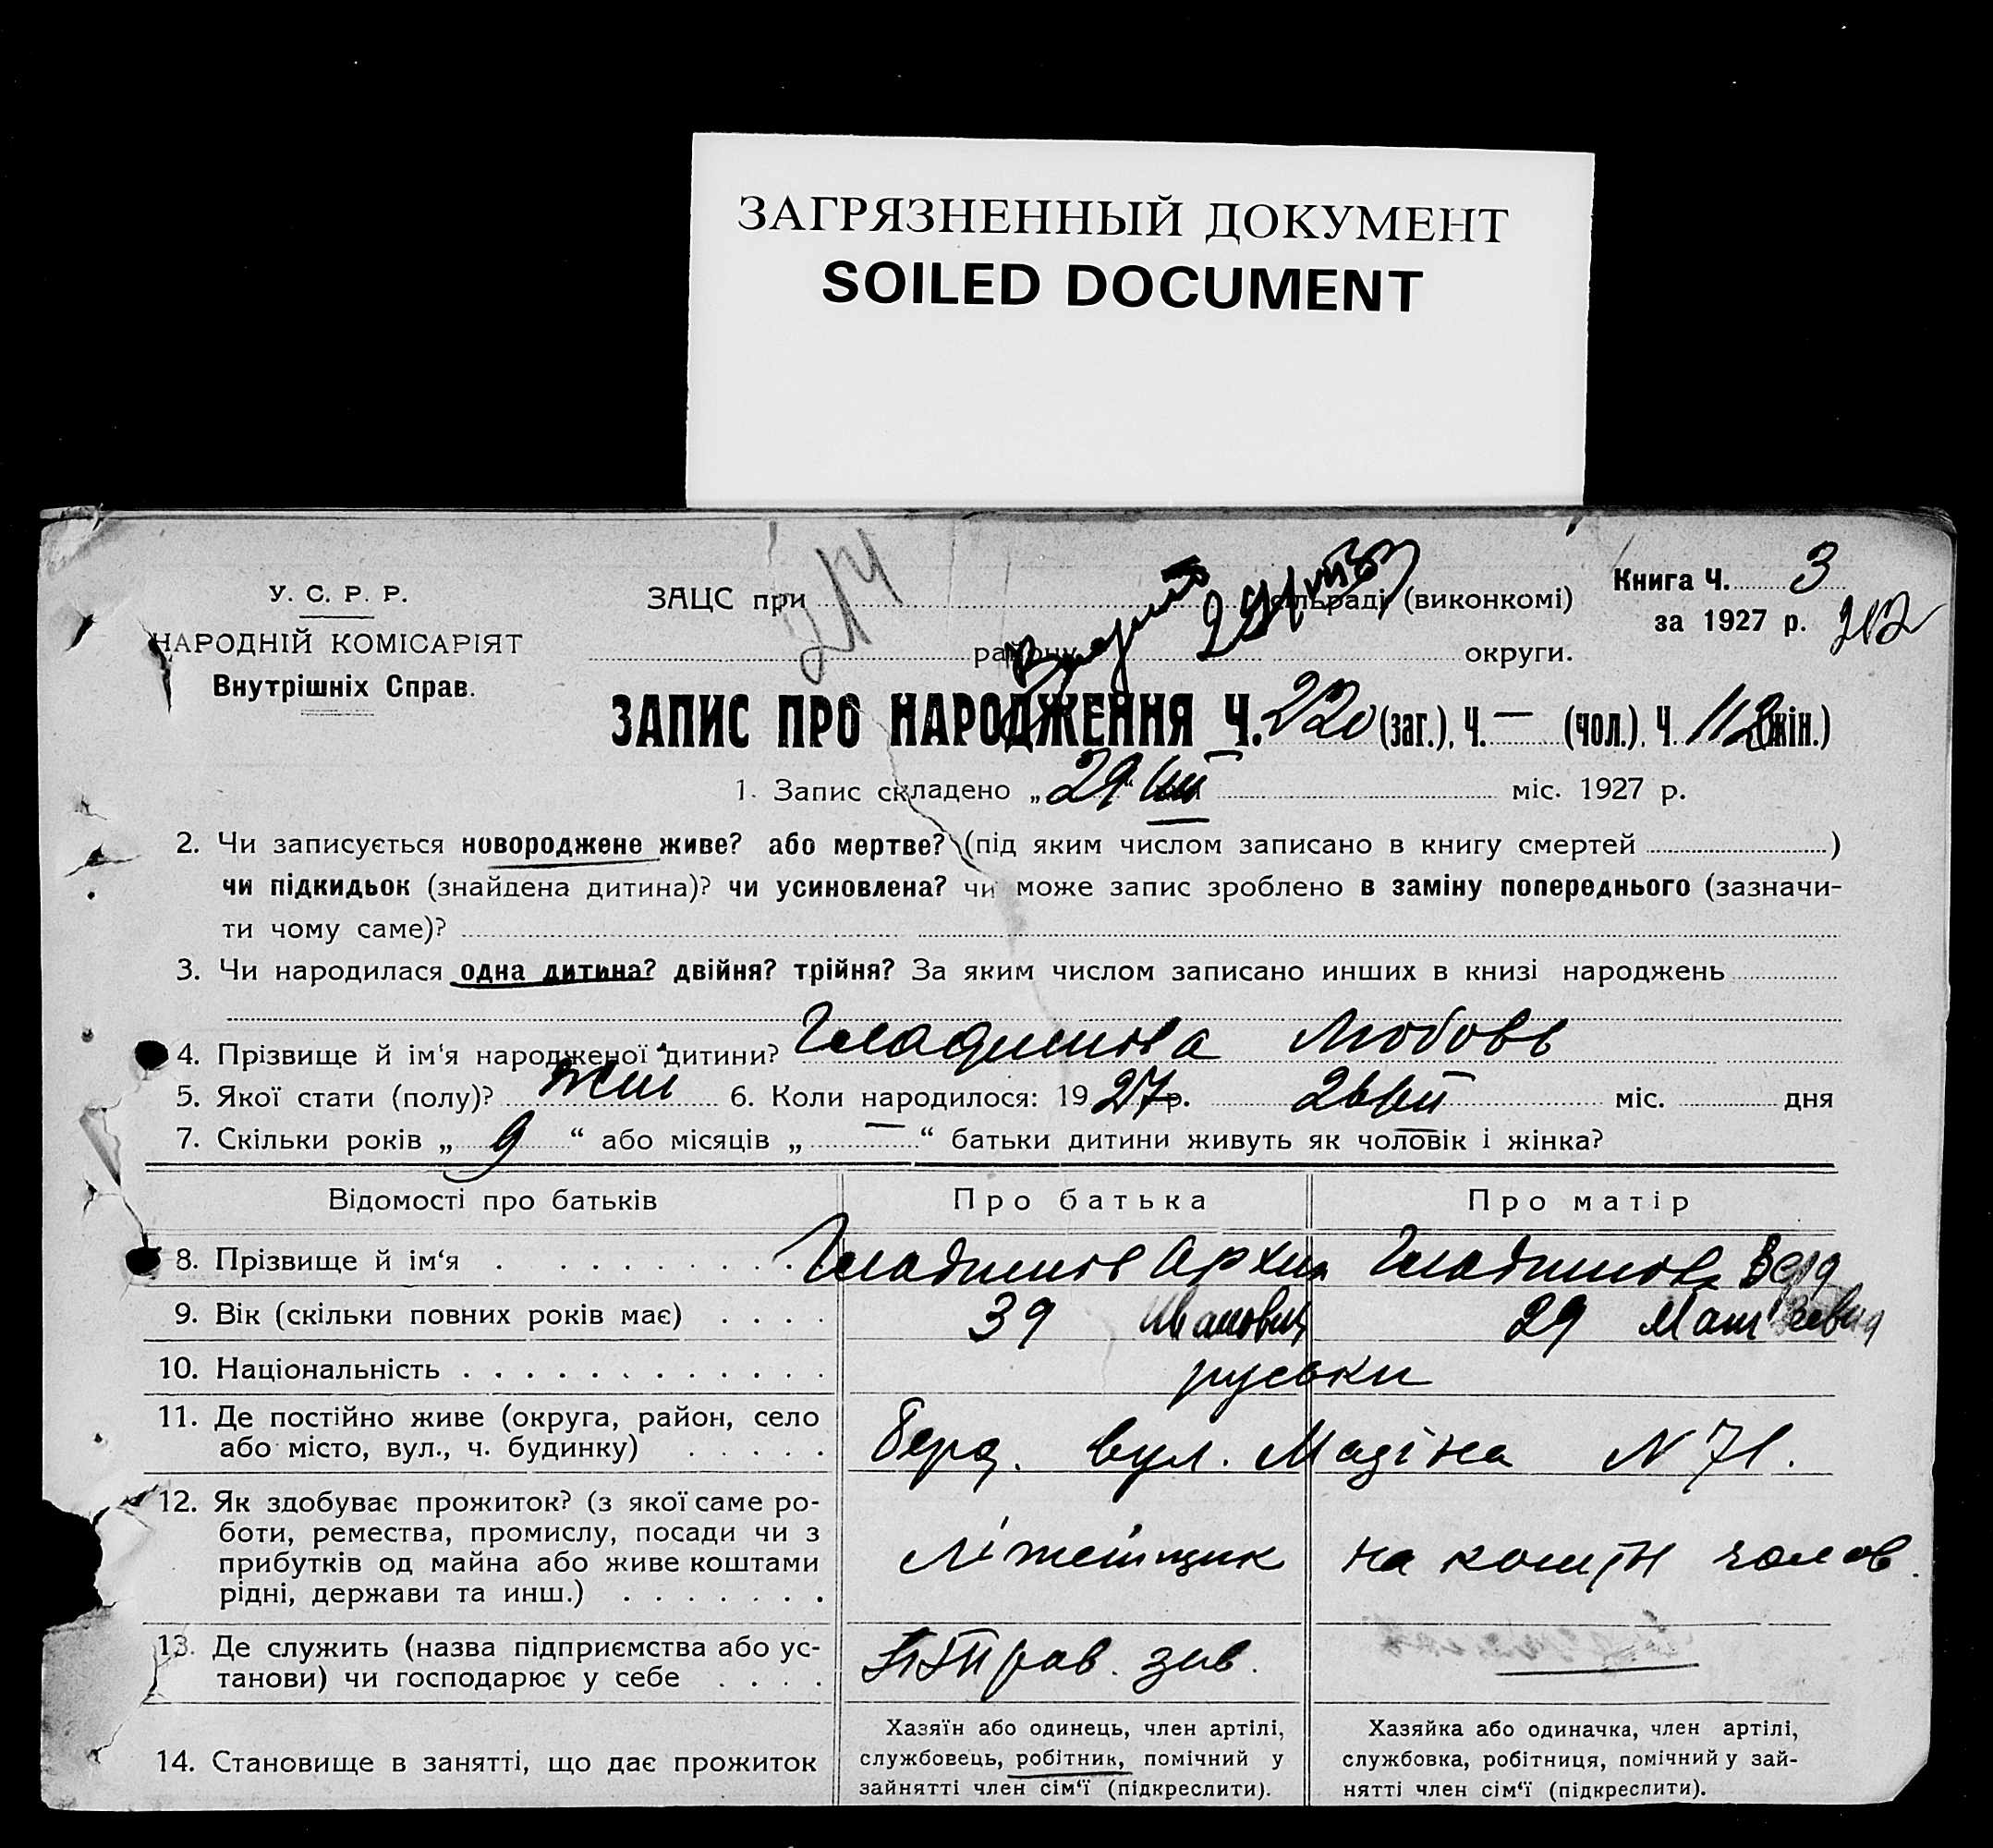 ЗАГРЯЗНЕННЫЙ ДОКУМЕНТ
SOILED DOCUMENT
У. С. Р. Р.
НАРОДНІЙ КОМІСАРІЯТ
Внутрішніх Справ.
214
ЗАЦС при сільраді (виконкомі)
району округи.
Книга Ч. 3
за 1927 р. 212
ЗАПИС ПРО НАРОДЖЕННЯ Ч. 220 (заг.), Ч. — (чол.), Ч. 112 (жін.)
1. Запис складено „29“ міс. 1927 р.
2. Чи записується новороджене живе? або мертве? (під яким числом записано в книгу смертей )
чи підкидьок (знайдена дитина)? чи усиновлена? чи може запис зроблено в заміну попереднього (зазначи-
ти чому саме)?
3. Чи народилася одна дитина? двійня? трійня? За яким числом записано инших в книзі народжень
4. Прізвище й ім'я народженої дитини? Любовь
5. Якої стати (полу)? жін 6. Коли народилося: 1927 р. міс. дня
7. Скільки років „ 9 “ або місяців „ — “ батьки дитини живуть як чоловік і жінка?
Відомості про батьків Про батька Про матір
8. Прізвище й ім'я Архип Вера
9. Вік (скільки повних років має) 39 Иванович 29
10. Національність руськи
11. Де постійно живе (округа, район, село
або місто, вул., ч. будинку) Берд. вул. Мазіна N 71.
12. Як здобуває прожиток? (з якої саме ро-
боти, ремества, промислу, посади чи з
прибутків од майна або живе коштами
рідні, держави та инш.) на кошти чолов.
13. Де служить (назва підприємства або ус-
танови) чи господарює у себе зав. —
14. Становище в занятті, що дає прожиток
Хазяїн або одинець, член артілі,
службовець, робітник, помічний у
зайнятті член сім'ї (підкреслити).
Хазяйка або одиначка, член артілі,
службовка, робітниця, помічний у зай-
нятті член сім'ї (підкреслити).